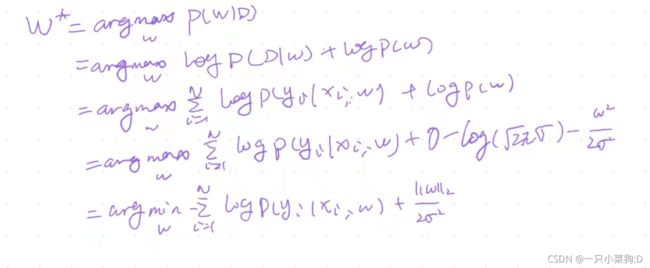 W* = argmax_w P(W|D)
= argmax_w log P(D|w) + log P(w)
= argmax_w Σ_{i=1}^{N} log P(y_i|x_i, w) + log P(w)
= arg max_w Σ_{i=1}^{N} log P(y_i|x_i, w) + 0 - log(√2π σ) - w²/2σ²
= arg min_w - Σ_{i=1}^{N} log P(y_i|x_i, w) + ||w||₂/2σ²
CSDN @一只小菜狗:D